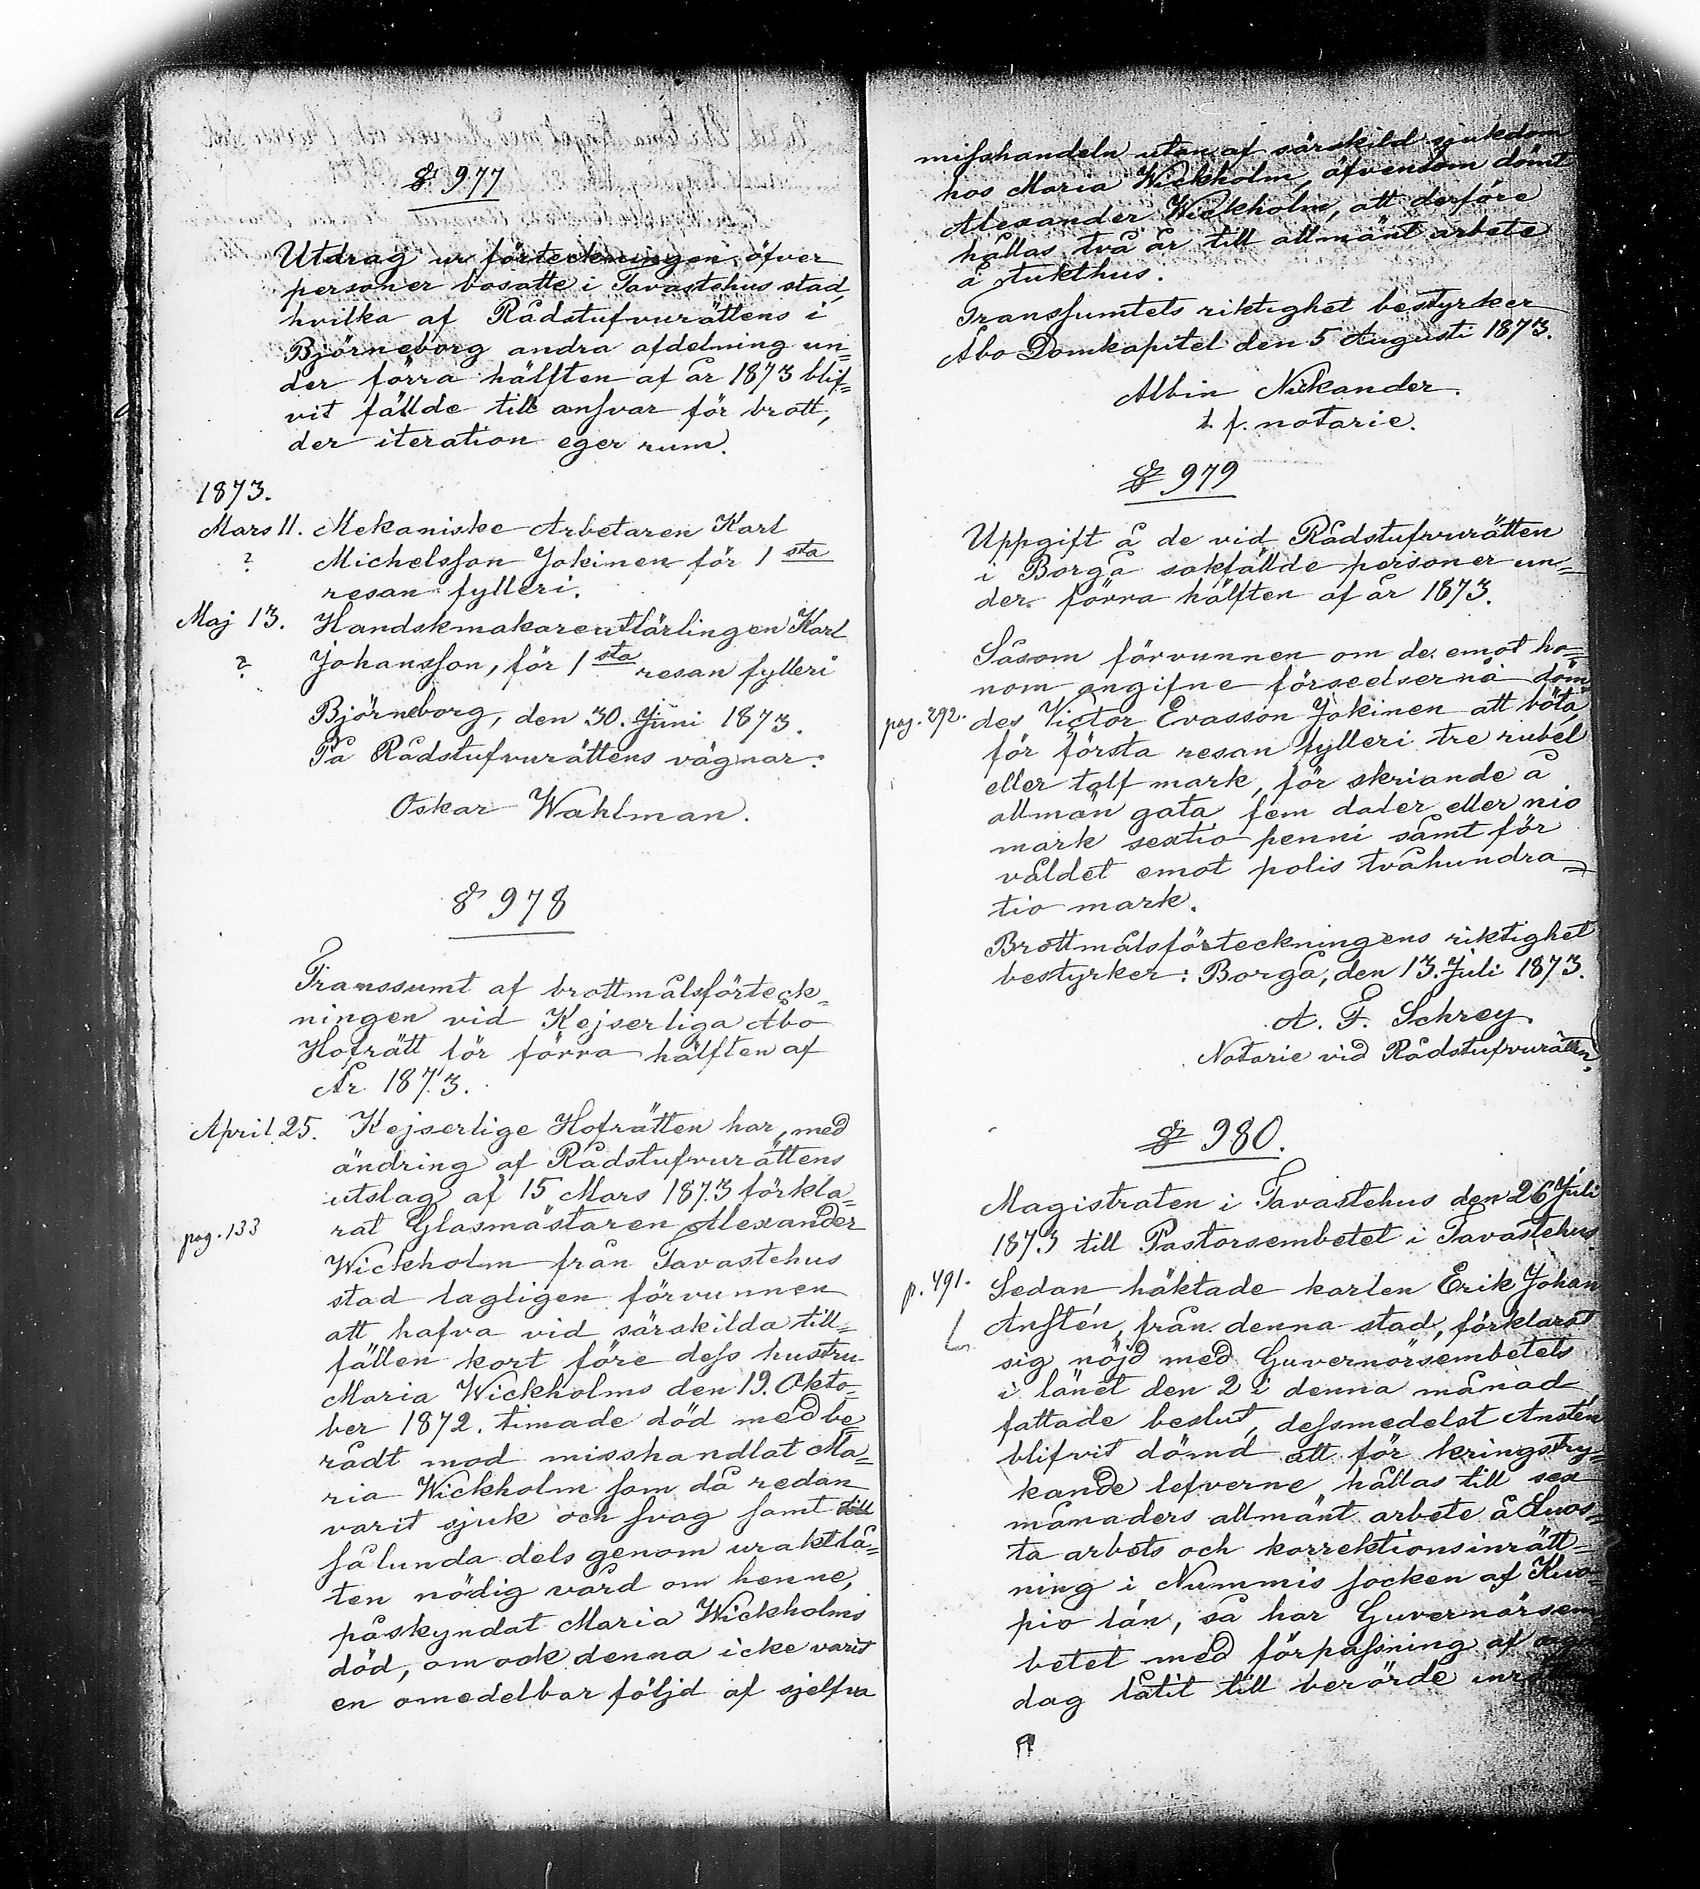 § 977
Utdrag ur förteckningen öfver
personer bosatte i Tavastehus stad,
hvilka af Rådstufvurättens i
Björneborg andra afdelning un-
der förra hälften af år 1873 blif-
vit fällde till ansvar för brott,
der iteration eger rum.
1873.
Mars 11. Mekaniske Arbetaren Karl
? Michelsson Jokinen för 1 sta
resan fylleri.
Maj 13. Handskmakareutlärlingen Karl
? Johansson, för 1 sta resan fylleri
Björneborg, den 30. Juni 1873.
På Rådstufvurättens vägnar:
Oskar Wahlman.
§ 978
Transsumt af brottmålsförteck-
ningen vid Kejserliga Åbo
Hofrätt för förra hälften af
År 1873.
April 25. Kejserlige Hofrätten har, med
ändring af Rådstufvurättens
utslag af 15 Mars 1873 förkla-
pag. 133 rat Glasmästaren Alexander
Wickholm från Tavastehus
stad lagligen förvunnen
att hafva vid särskilda till-
fällen kort före dess hustru
Maria Wickholms den 19. Okto-
ber 1872. timade död med be
rådt mod misshandlat Ma-
ria Wickholm som då redan
varit sjuk och svag samt till
sålunda dels genom uraktlå-
ten nödig vård om henne,
påskyndat Maria Wickholms
död, om ock denna icke varit
en omedelbar följd af sjelfva
misshandeln utan af särskild sjukdom
hos Maria Wickholm, äfvensom dömt
Alexander Wickholm, att derföre
hållas två år till allmänt arbete
å tukthus.
Transsumtets riktighet bestyrker
Åbo Domkapitel den 5 Augusti 1873.
Albin Nikander.
t. f. notarie.
§ 979
Uppgift å de vid Rådstufvurätten
i Borgå sakfällde personer un-
der förra hälften af år 1873.
Såsom förvunnen om de emot ho-
nom angifne förseelserna döm
pag. 292. des Victor Evasson Jokinen att böta,
för första resan fylleri tre rubel
eller tolf mark, för skriande å
allmän gata fem daler eller nio
mark sextio penni samt för
våldet emot polis tvåhundra-
tio mark.
Brottmålsförteckningens riktighet
bestyrker: Borgå, den 13. Juli 1873.
A. F. Schrey
Notarie vid Rådstufvurätten,
§ 980.
Magistraten i Tavastehus den 26 Juli
1873 till Pastorsembetet i Tavastehus
p. 491. Sedan häktade karlen Erik Johan
Anstén, från denna stad, förklarat
sig nöjd med Guvernörsembetets
i länet den 2 i denna månad
fattade beslut, dessmedelst Anstén
blifvit dömd att för kringstry-
kande lefverne hållas till sex
månaders allmänt arbete å Luos-
ta arbets och korrektionsinrätt-
ning i Nummis socken af Kuo-
pio län, så har Guvernörsem
betet med förpassning af
dag låtit till berörde